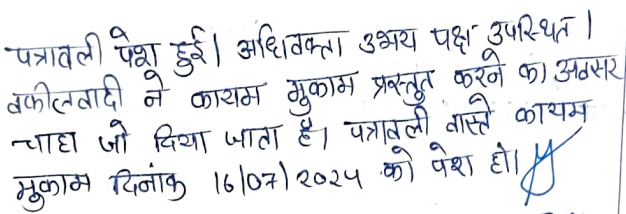 पत्रावली पेश हुई। अधिवक्ता उभय पक्ष उपस्थित।
वकीलवादी ने कायम मुकाम प्रस्तुत करने का अवसर
चाहा जो दिया जाता है। पत्रावली वास्ते कायम
मुकाम दिनांक 16/07/2024 को पेश हो।